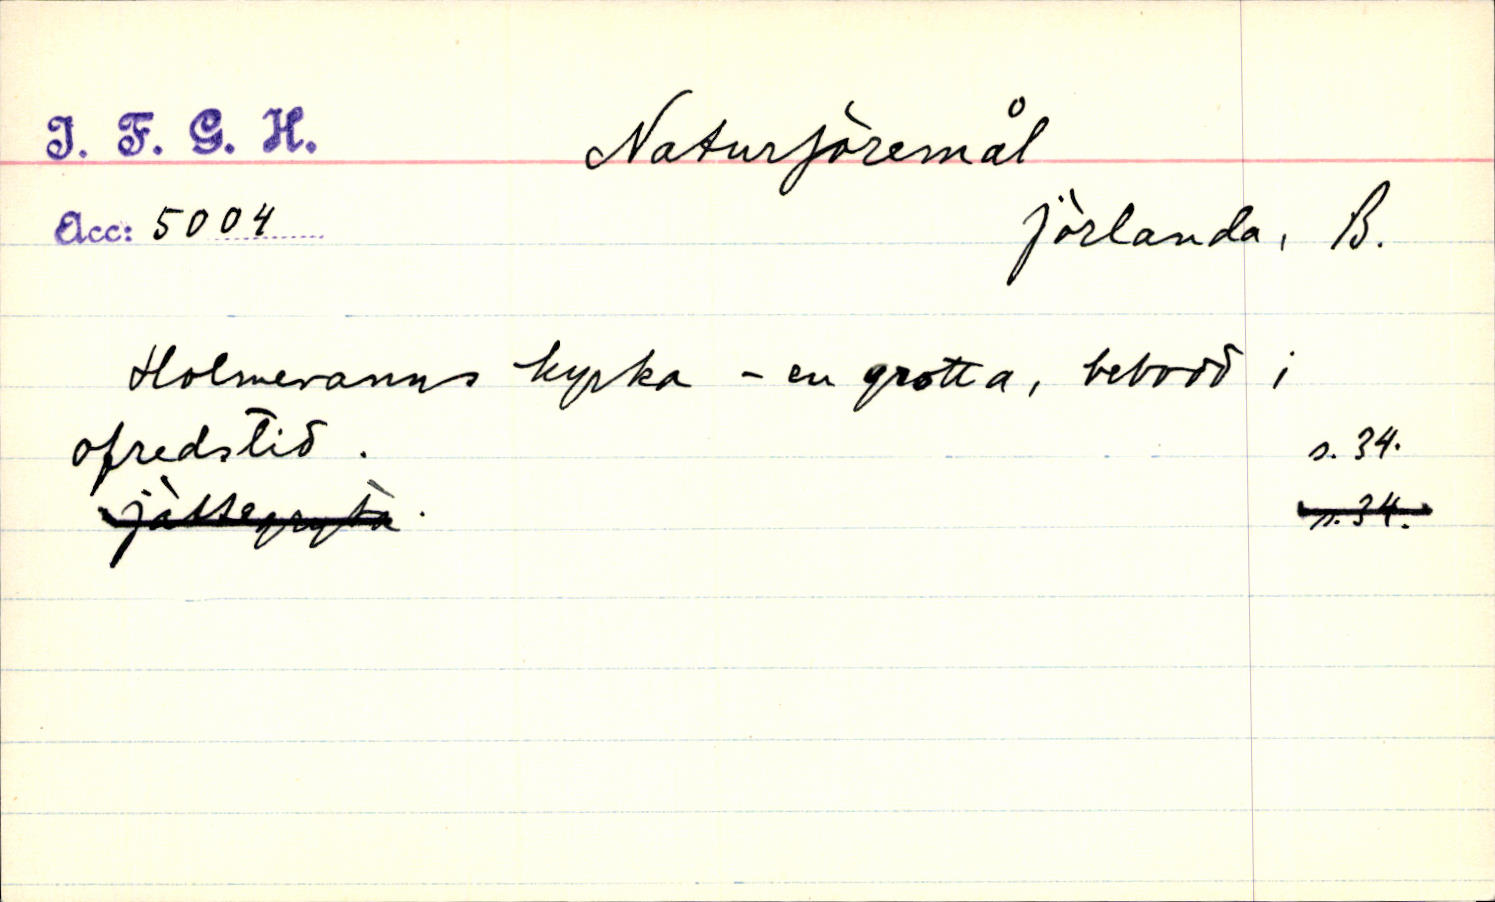 I. F. G. H.
Naturföremål
Acc: 5004
Jörlanda, B.
Holmevanns kyrka - en grotta, bebodd i
ofredstid. s. 34.
jättegryta. s. 34.